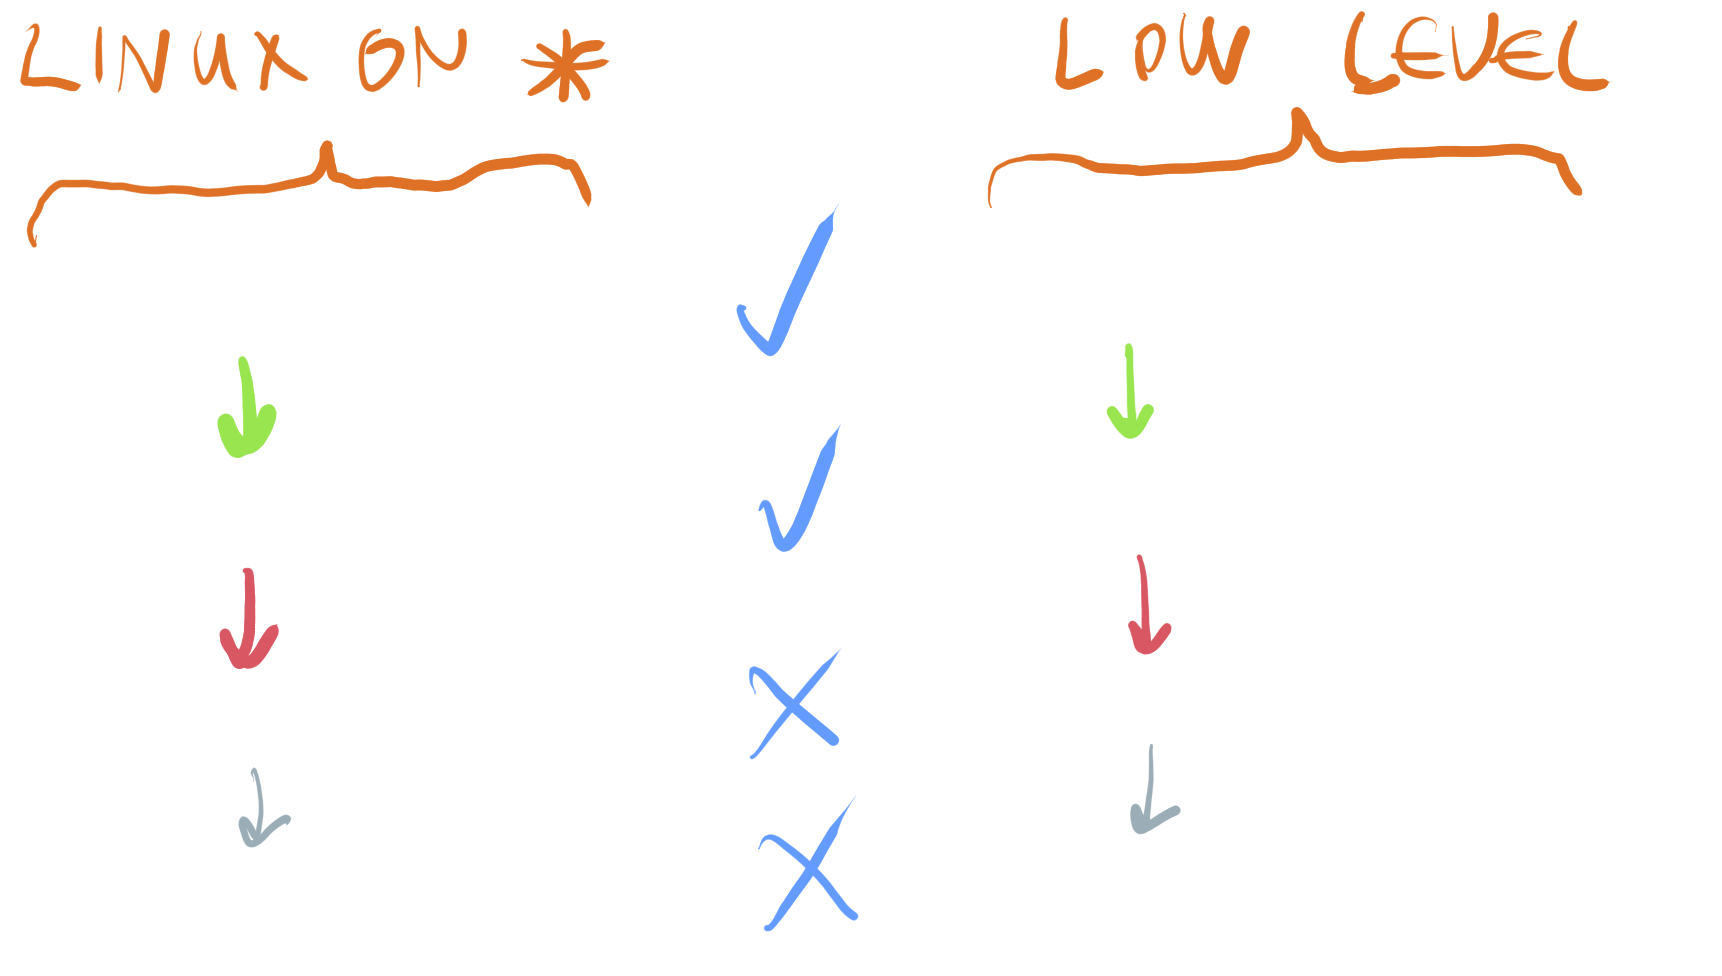 LINUX ON *
LOW LEVEL